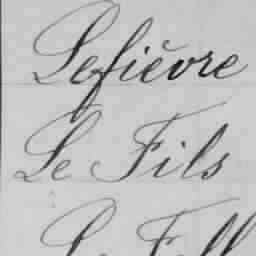 Lefièvre
Le Fils